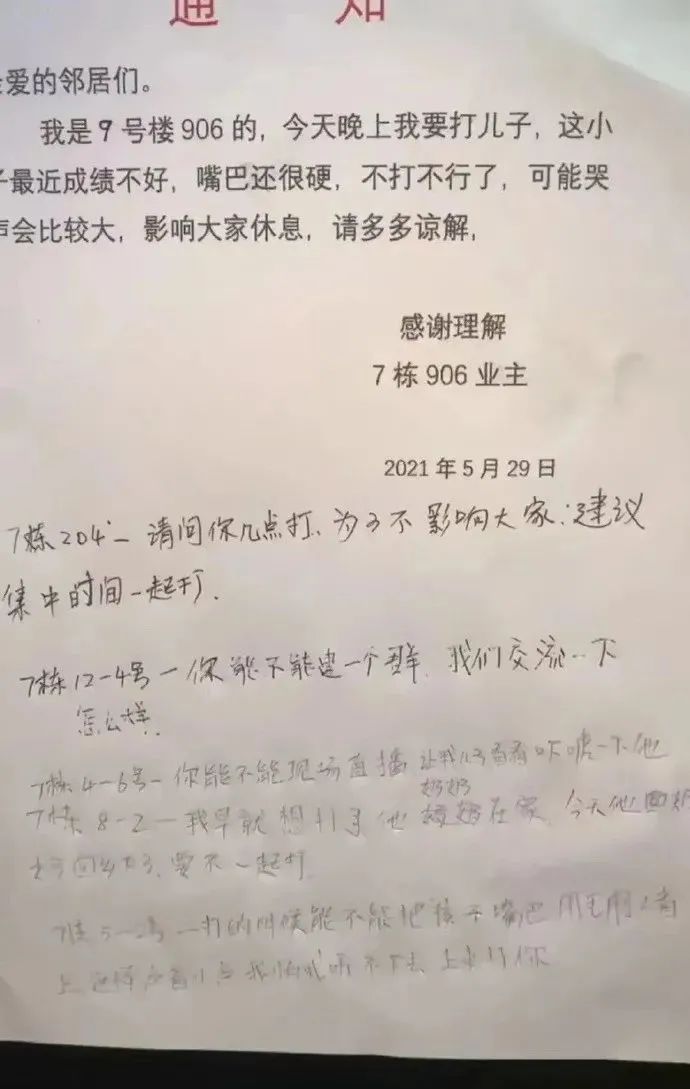 通 知
爱的邻居们。
我是9号楼906的，今天晚上我要打儿子，这小
子最近成绩不好，嘴巴还很硬，不打不行了，可能哭
声会比较大，影响大家休息，请多多谅解，
感谢理解
7栋906业主
2021年5月29日
7栋204 一 请问你几点打、为了不影响大家：建议
集中时间一起打.
7栋12-4号一你能不能建一个群. 我们交流一下
怎么样.
7栋4-6号-你能不能现场直播 让我儿子看看吓唬一下他
奶奶
7栋8-2一我早就想打了他 在家 今天他
回 了. 要不一起打.
7栋 号一打的时候能不能把孩子嘴巴用毛
上 我怕我听不下去 上来 你